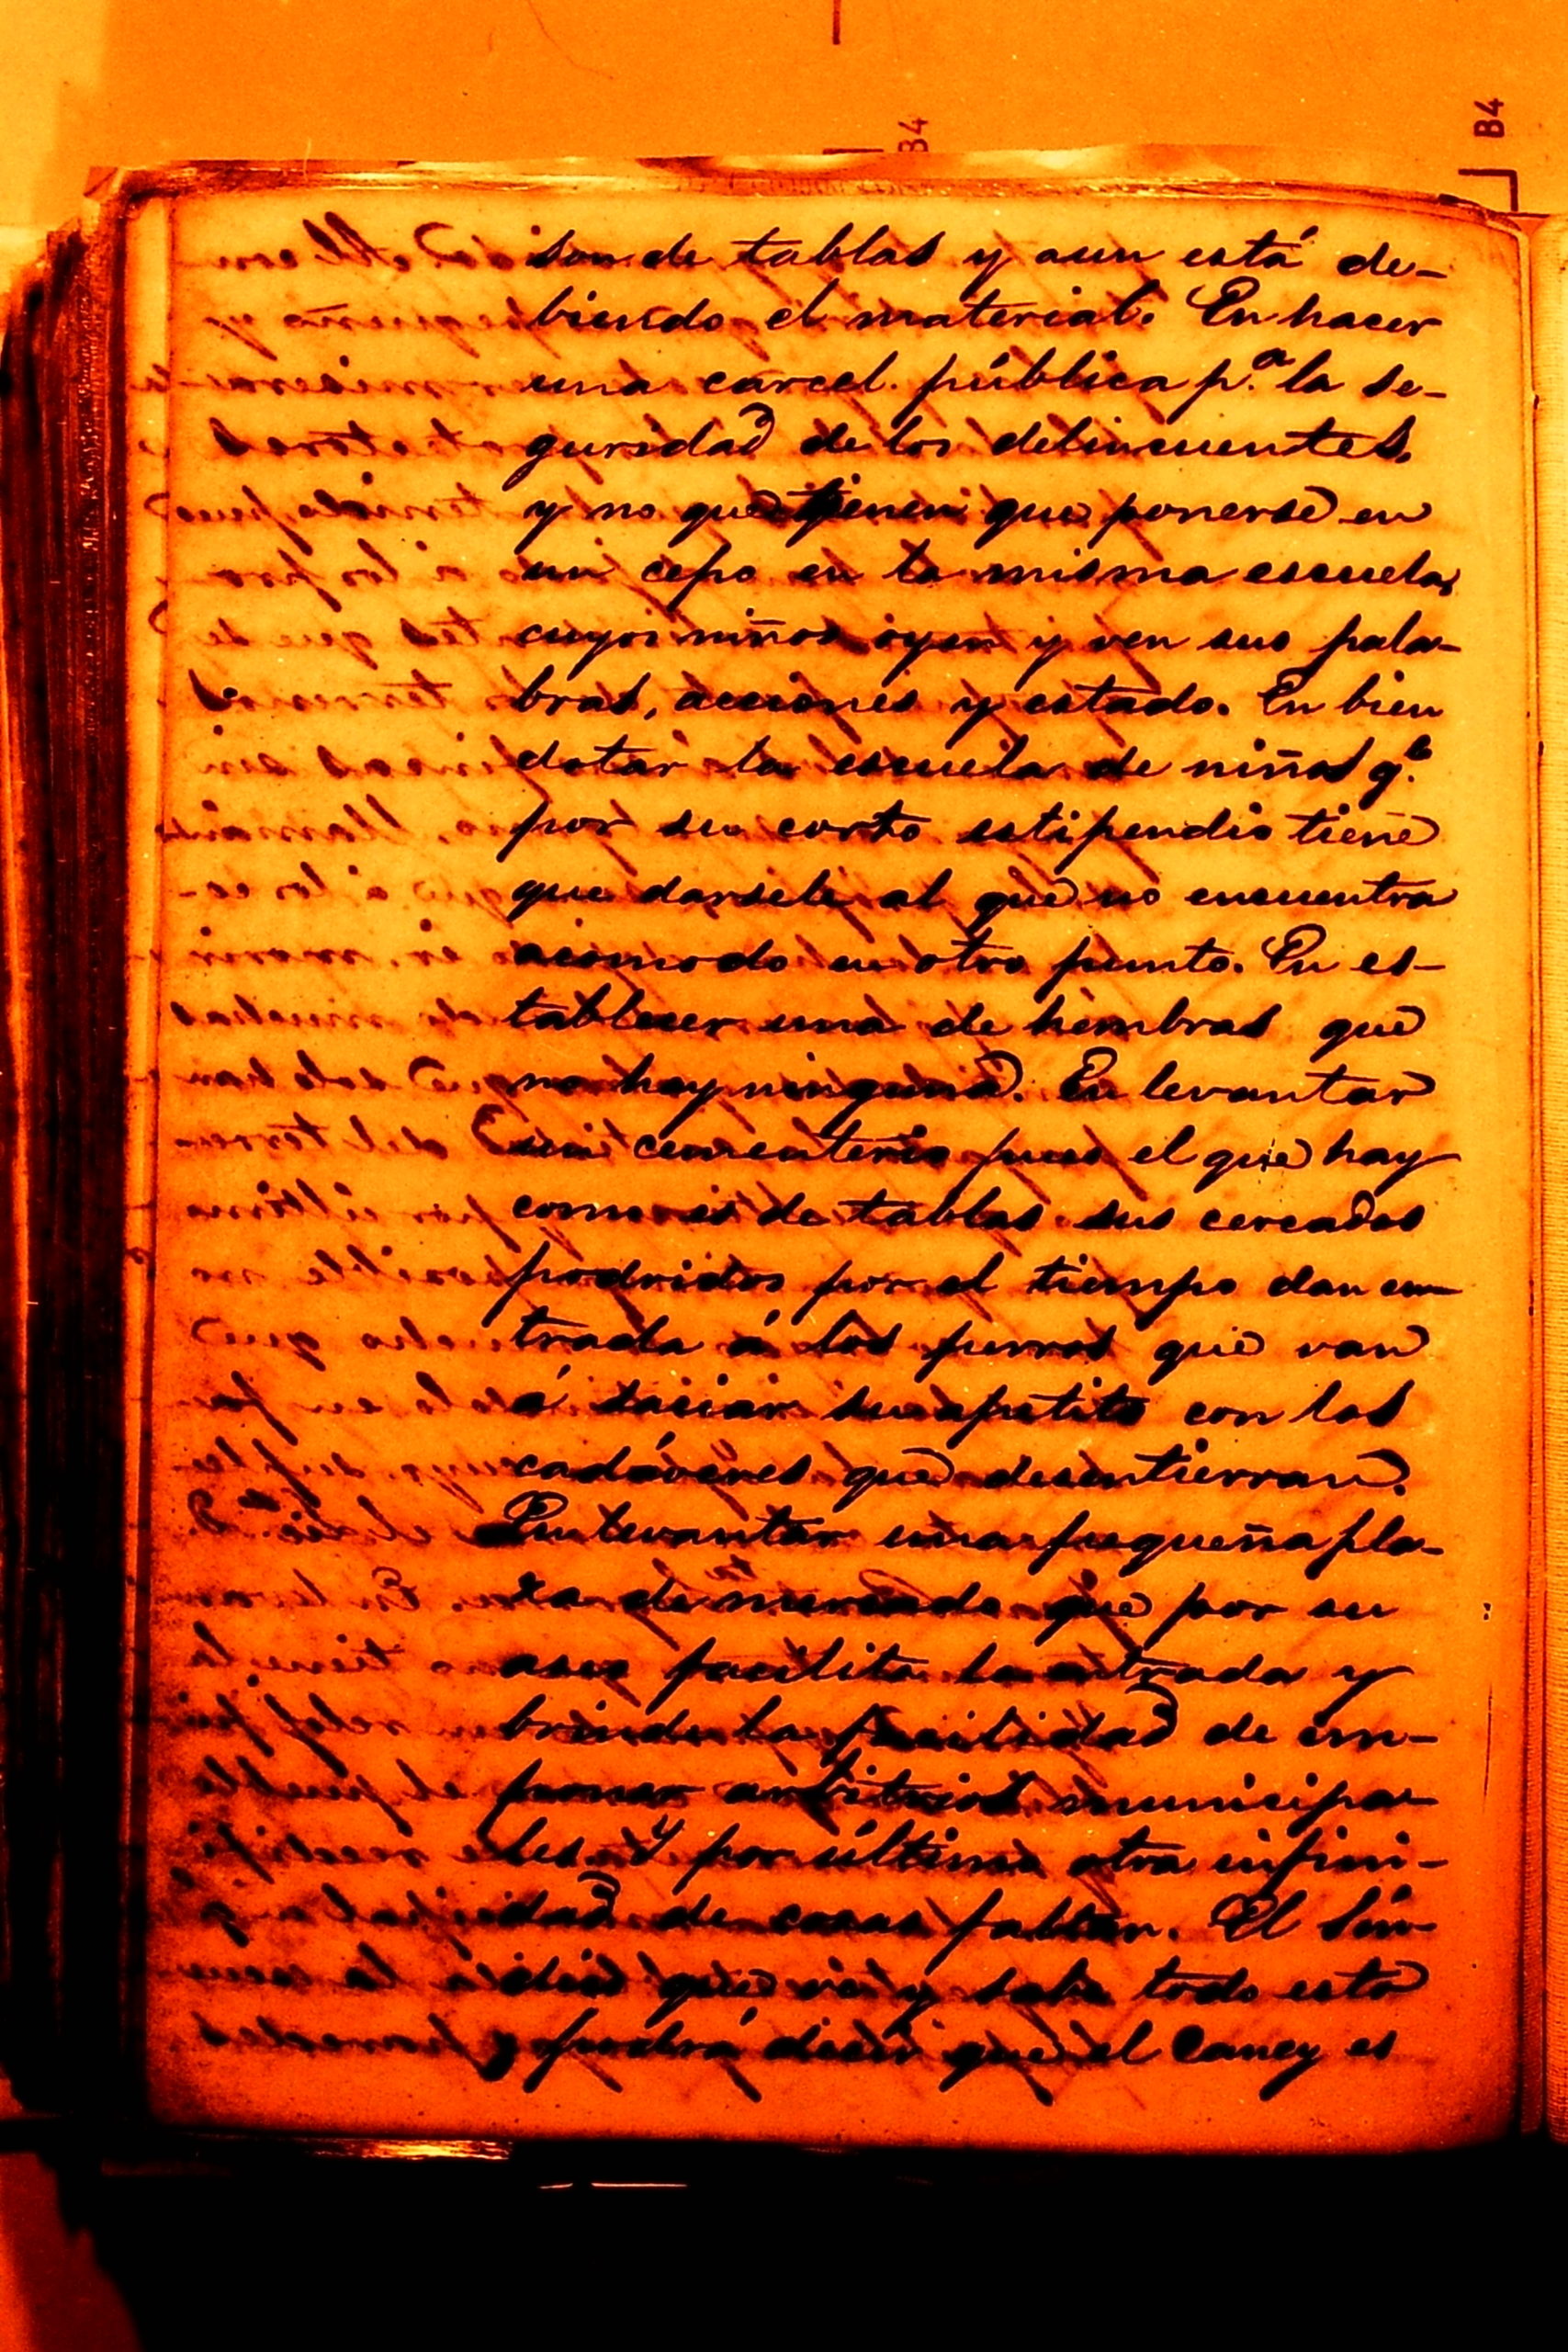 B4
B4
son de tablas y aun está de-
biendo el material. En hacer
una carcel pública p.ª la se-
guridad de los delincuentes,
y no que tienen que ponerse en
un cepo en la misma escuela,
cuyos niños oyen y ven sus pala-
bras, acciones y estado. En bien
dotar la escuela de niños q.e
por su corto estipendio tiene
que darsele al que no encuentra
acomodo en otro punto. En es-
tablecer una de hembras que
no hay ninguna. En levantar
un cementerio pues el que hay
como es de tablas sus cercados
podridos por el tiempo dan en-
trada á los perros que van
á saciar su apetito con los
cadáveres que desentierran.
En levantar una pequeña pla-
za de mercado que por su
aseo facilite la entrada y
brinde la facilidad de im-
poner arbitrios municipa-
les. Y por último otra infini-
dad de cosas faltan. El Sín-
dico que vé y sabe todo esto
y podrá decir que el Caney es